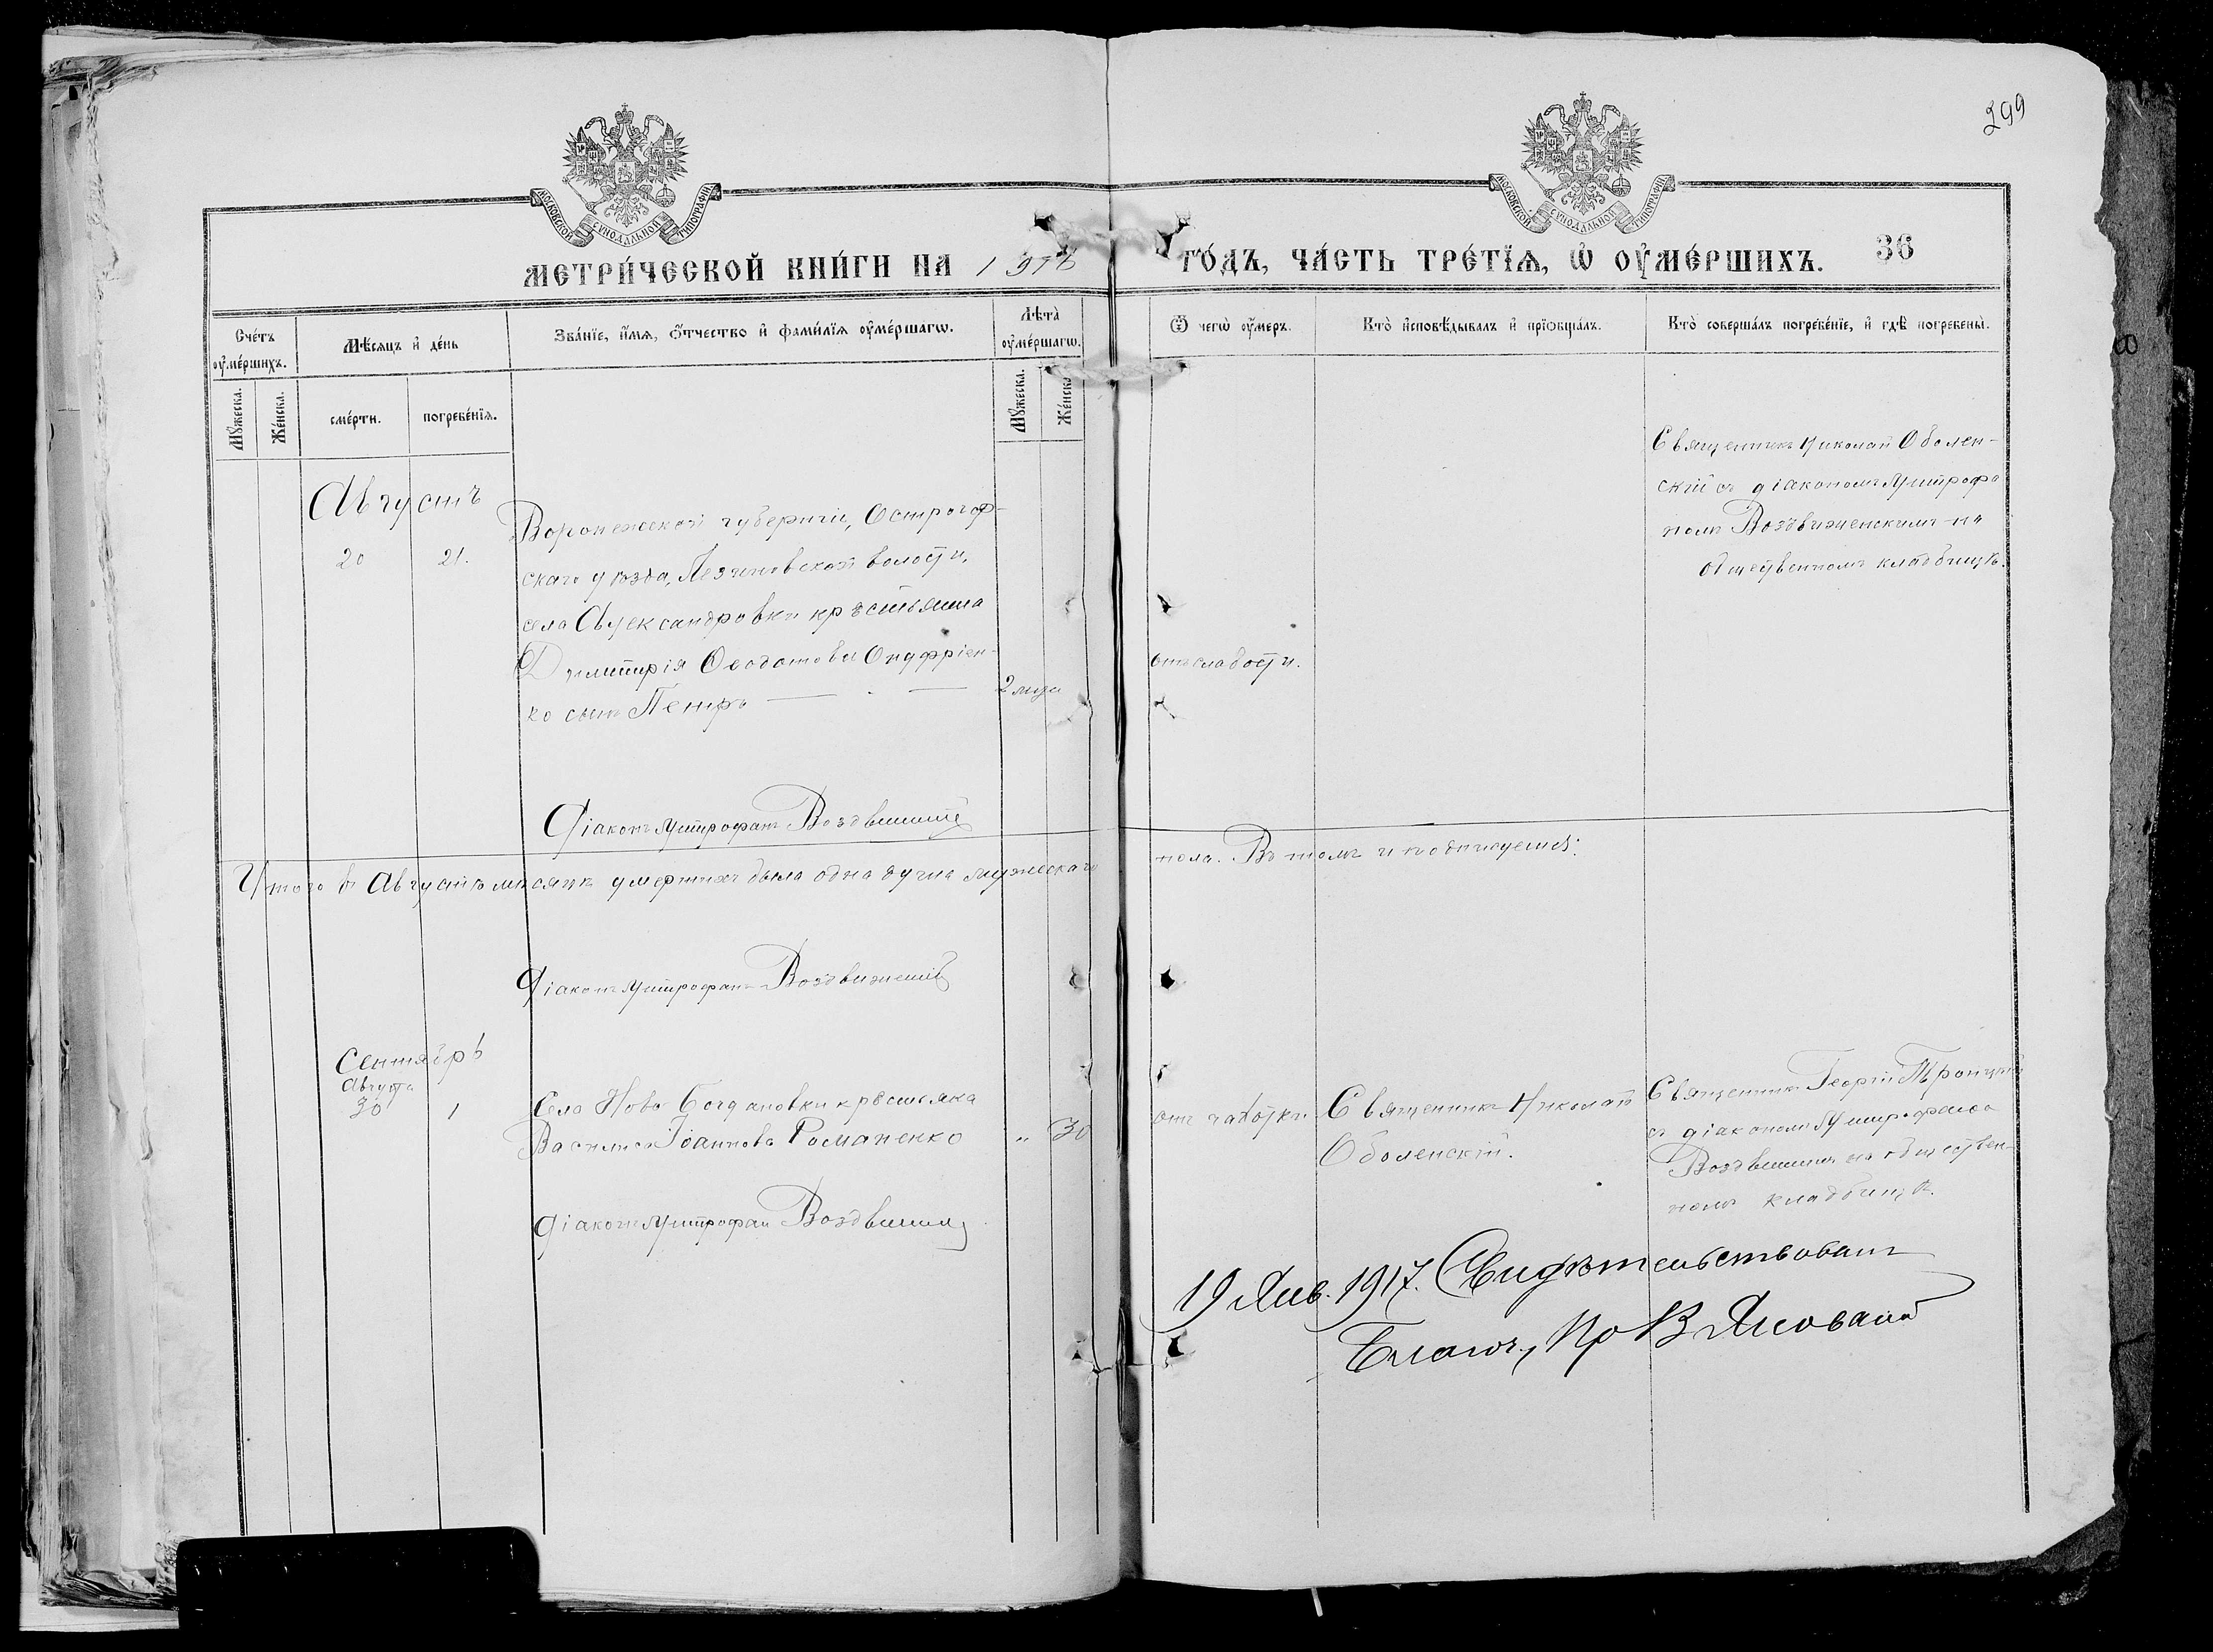 299
МОСКОВСКОЙ СУНОДАЛЬНОЙ ТИПОГРАФІИ
МОСКОВСКОЙ СУНОДАЛЬНОЙ ТИПОГРАФІИ
МЕТРИ́ЧЕСКОЙ КНИ́ГИ НА 1916 ГО́ДЪ, ЧА́СТЬ ТРЕ́ТІѦ, Ѡ ОУ҆МЕ́РШИХЪ. 36
Сче́тъ оу҆ме́ршихъ.
Мѣ́сяцъ и҆ де́нь
Зва́нїе, и҆́мѧ, ѻ҆́тчество и҆ фами́лїѧ оу҆ме́ршагѡ.
Лѣ́та̀ оу҆ме́ршагѡ.
Ѿ чегѡ̀ оу҆́меръ.
Кто̀ и҆сповѣ́дывалъ и҆ прїѡбща́лъ.
Кто̀ соверша́лъ погребе́нїе, и҆ гдѣ̀ погребены̀.
Мꙋ́жеска.
Же́нска.
сме́рти.
погребе́нїѧ.
Мꙋ́жеска.
Же́нска.
Августъ
20 21.
Воронежской губерніи, Острогож-
скаго уѣзда, Лезиновской волости,
села Александровки крѣстьянина
Димитрія Ѳеодотова Онуфріен-
ко сынъ Петръ
2 мѣся
отъ слабости.
Священникъ Николай Оболен-
скій съ діакономъ Митрофа
номъ Воздвиженскимъ на
общественномъ кладбищѣ.
Діаконъ Митрофанъ Воздвиженскій
Итого въ Августѣ мѣсяцѣ умершихъ была одна душа мужескаго
пола. Въ томъ и подписуемся:
Діаконъ Митрофанъ Воздвиженскій
Сентябрь
Августа
30 1
Села Ново Богдановки крѣстьянка
Василиса Іоаннова Романенко
" 30
отъ чахотки
Священникъ Николай
Оболенскій.
Священникъ Георгій Троицкій
съ діакономъ Митрофаном
Воздвиженским на обществен-
номъ кладбищѣ.
Діаконъ Митрофан Воздвиженскій
19 Янв. 1917. Свидѣтельствовалъ
Благоч., Пр В